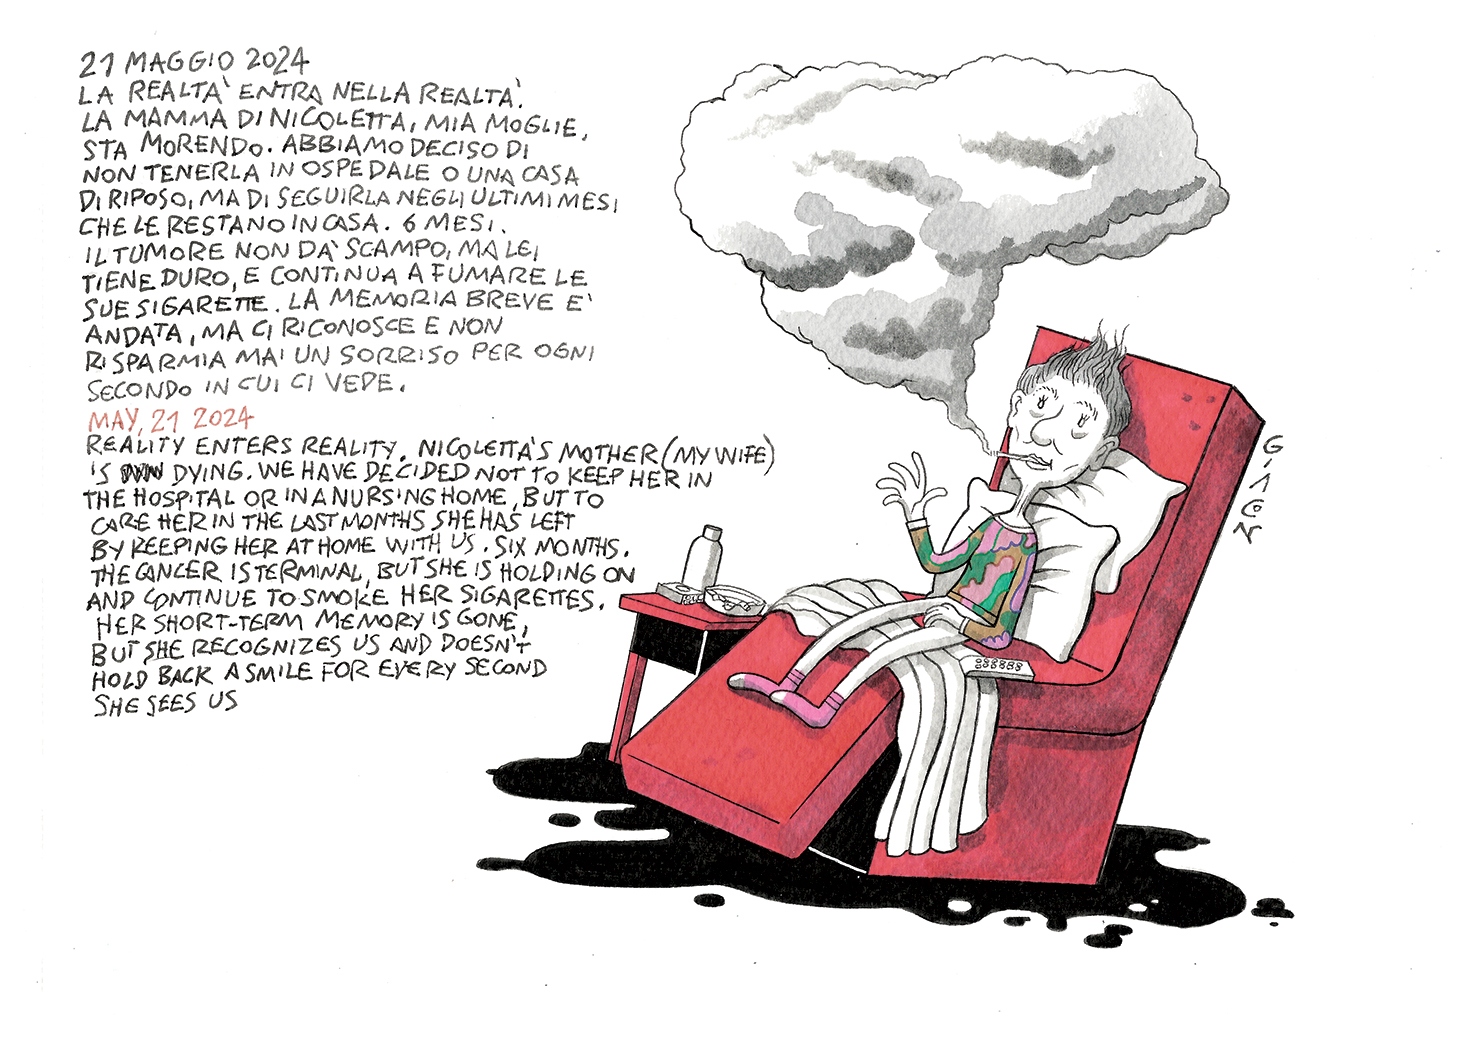 21 MAGGIO 2024
LA REALTA' ENTRA NELLA REALTA'.
LA MAMMA DI NICOLETTA, MIA MOGLIE,
STA MORENDO. ABBIAMO DECISO DI
NON TENERLA IN OSPEDALE O UNA CASA
DI RIPOSO, MA DI SEGUIRLA NEGLI ULTIMI MESI
CHE LE RESTANO IN CASA. 6 MESI.
IL TUMORE NON DA' SCAMPO, MA LEI
TIENE DURO, E CONTINUA A FUMARE LE
SUE SIGARETTE. LA MEMORIA BREVE E'
ANDATA, MA CI RICONOSCE E NON
RISPARMIA MAI UN SORRISO PER OGNI
SECONDO IN CUI CI VEDE.
MAY, 21 2024
REALITY ENTERS REALITY. NICOLETTA'S MOTHER (MY WIFE)
IS DYING. WE HAVE DECIDED NOT TO KEEP HER IN
THE HOSPITAL OR IN A NURSING HOME, BUT TO
CARE HER IN THE LAST MONTHS SHE HAS LEFT
BY KEEPING HER AT HOME WITH US. SIX MONTHS.
THE CANCER IS TERMINAL, BUT SHE IS HOLDING ON
AND CONTINUE TO SMOKE HER SIGARETTES.
HER SHORT-TERM MEMORY IS GONE,
BUT SHE RECOGNIZES US AND DOESN'T
HOLD BACK A SMILE FOR EVERY SECOND
SHE SEES US
GIACON